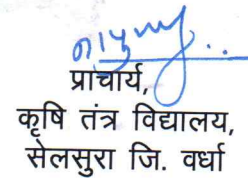 प्राचार्य,
कृषि तंत्र विद्यालय,
सेलसुरा जि. वर्धा